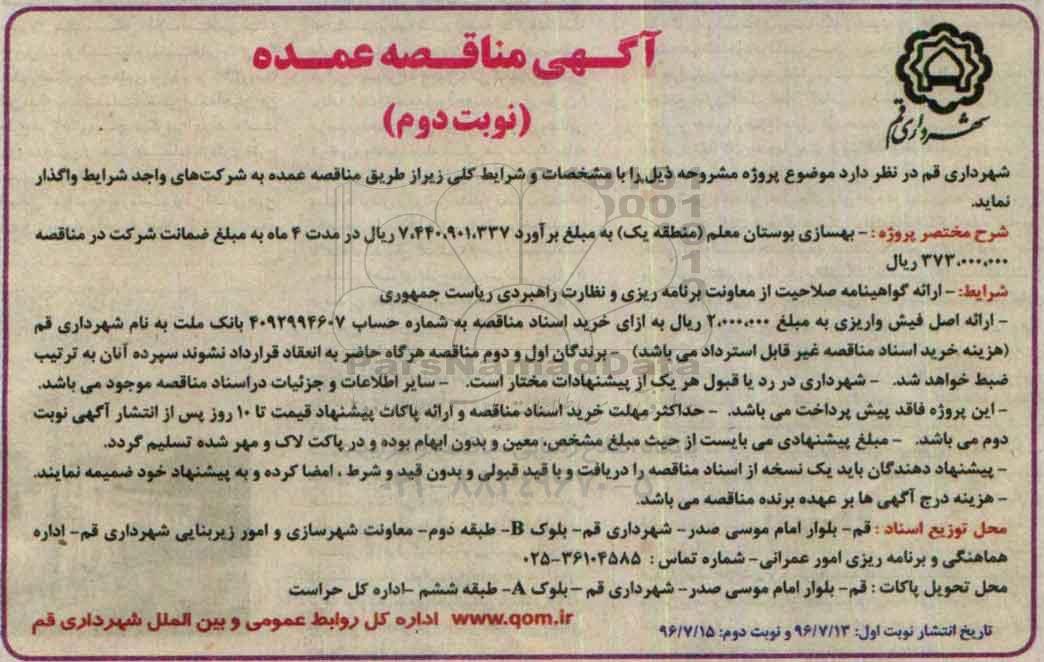 شهرداری قم
آگهی مناقصه عمده
(نوبت دوم)
شهرداری قم در نظر دارد موضوع پروژه مشروحه ذیل را با مشخصات و شرایط کلی زیراز طریق مناقصه عمده به شرکت‌های واجد شرایط واگذار
نماید.
شرح مختصر پروژه : - بهسازی بوستان معلم (منطقه یک) به مبلغ برآورد ۷،۴۴۰،۹۰۱،۳۳۷ ریال در مدت ۴ ماه به مبلغ ضمانت شرکت در مناقصه
۳۷۳،۰۰۰،۰۰۰ ریال
شرایط: - ارائه گواهینامه صلاحیت از معاونت برنامه ریزی و نظارت راهبردی ریاست جمهوری
- ارائه اصل فیش واریزی به مبلغ ۲،۰۰۰،۰۰۰ ریال به ازای خرید اسناد مناقصه به شماره حساب ۴۰۹۲۹۹۴۶۰۷ بانک ملت به نام شهرداری قم
(هزینه خرید اسناد مناقصه غیر قابل استرداد می باشد) - برندگان اول و دوم مناقصه هرگاه حاضر به انعقاد قرارداد نشوند سپرده آنان به ترتیب
ضبط خواهد شد. - شهرداری در رد یا قبول هر یک از پیشنهادات مختار است. - سایر اطلاعات و جزئیات دراسناد مناقصه موجود می باشد.
- این پروژه فاقد پیش پرداخت می باشد. - حداکثر مهلت خرید اسناد مناقصه و ارائه پاکات پیشنهاد قیمت تا ۱۰ روز پس از انتشار آگهی نوبت
دوم می باشد. - مبلغ پیشنهادی می بایست از حیث مبلغ مشخص، معین و بدون ابهام بوده و در پاکت لاک و مهر شده تسلیم گردد.
- پیشنهاد دهندگان باید یک نسخه از اسناد مناقصه را دریافت و با قید قبولی و بدون قید و شرط ، امضا کرده و به پیشنهاد خود ضمیمه نمایند.
- هزینه درج آگهی ها بر عهده برنده مناقصه می باشد.
محل توزیع اسناد : قم- بلوار امام موسی صدر- شهرداری قم- بلوک B- طبقه دوم- معاونت شهرسازی و امور زیربنایی شهرداری قم- اداره
هماهنگی و برنامه ریزی امور عمرانی- شماره تماس : ۳۶۱۰۴۵۸۵-۰۲۵
محل تحویل پاکات : قم- بلوار امام موسی صدر- شهرداری قم -بلوک A- طبقه ششم -اداره کل حراست
تاریخ انتشار نوبت اول: ۹۶/۷/۱۳ و نوبت دوم: ۹۶/۷/۱۵
www.qom.ir اداره کل روابط عمومی و بین الملل شهرداری قم
ParsNamadData
۰۲۱-۸۸۳۴۹۶۷۰-۵